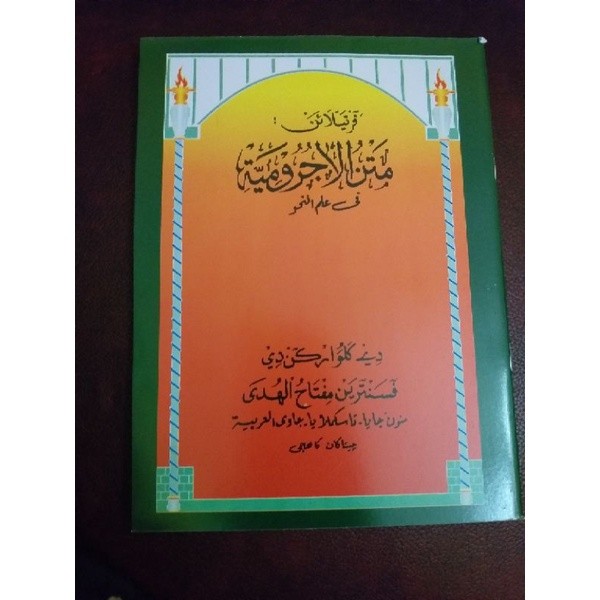 ڤرتيلائن :
متن الأجرومية
في علم النحو
دي كلوار كن دي
ڤسنترين مفتاح الهدى
منون جايا - تاسكملايا - جاوى الغربية
چيتاكان كا